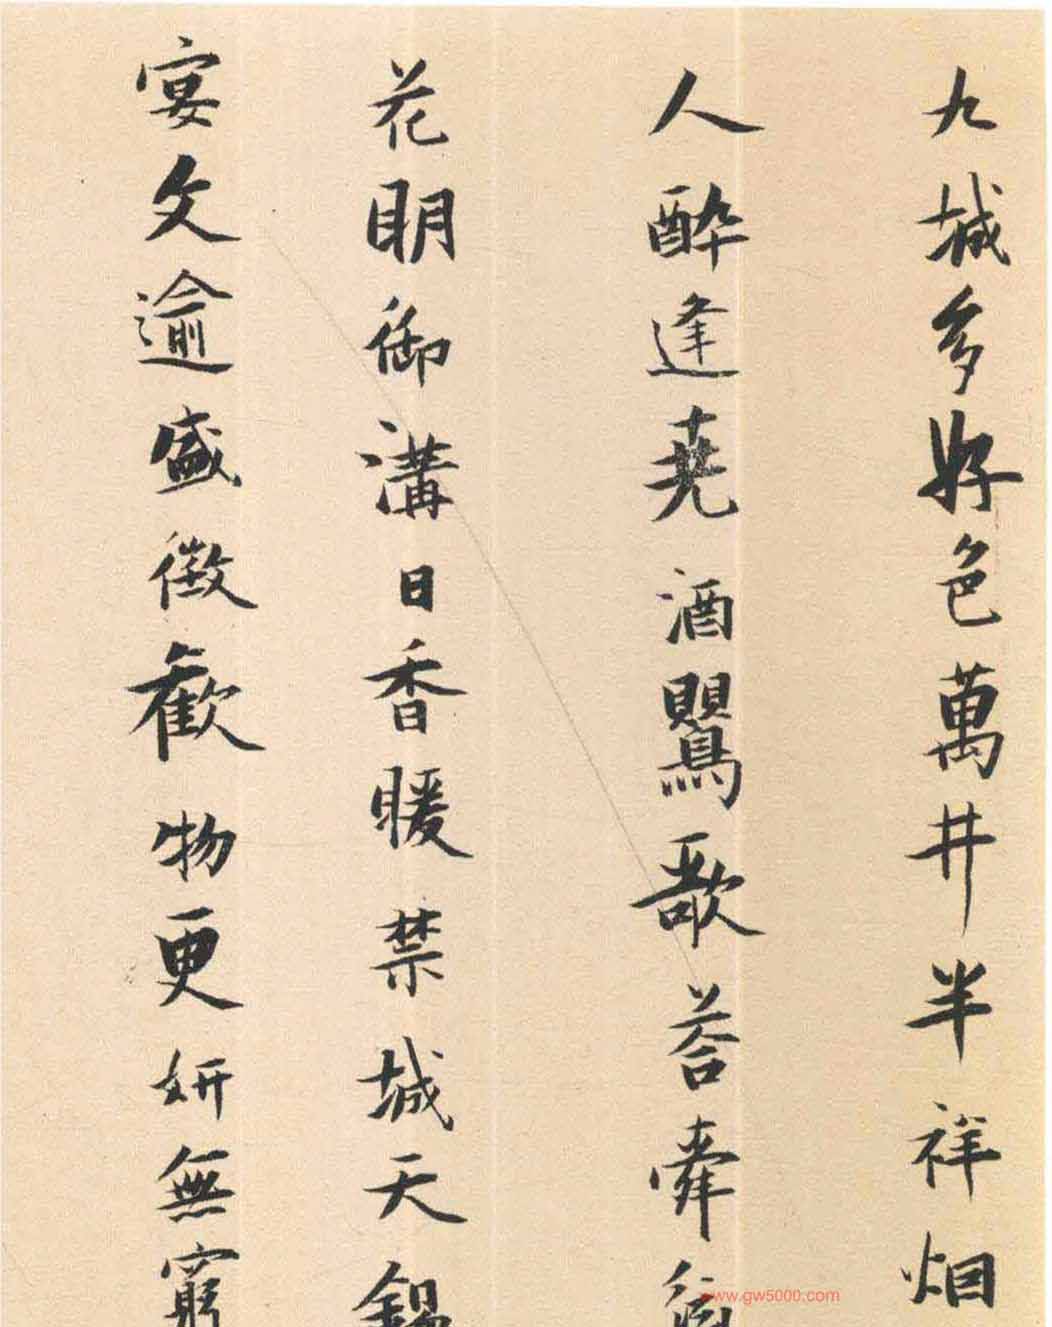 九城多好色萬井半祥烟
人醉逢堯酒鸎歌荅舜
花明御溝日香暖禁城天
宴文逾盛徵歡物更妍無
www.gw5000.com